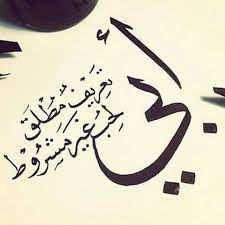 أبي
تعريف مُطْلَق
لحب غير مَشرُوط